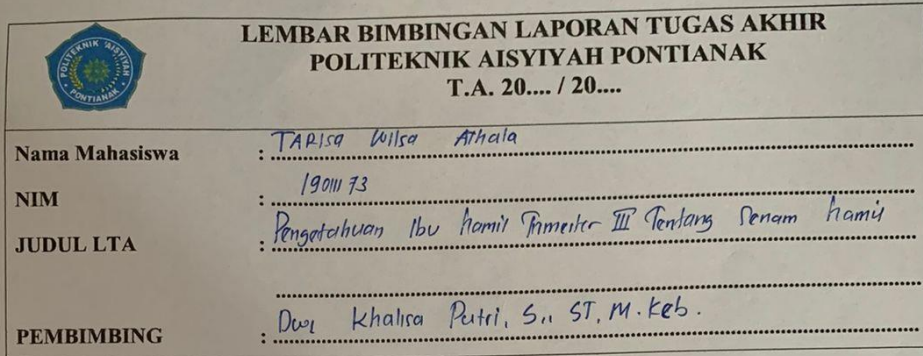 POLITEKNIK 'AISYIYAH
PONTIANAK
LEMBAR BIMBINGAN LAPORAN TUGAS AKHIR
POLITEKNIK AISYIYAH PONTIANAK
T.A. 20.... / 20....
Nama Mahasiswa : TARISa Wilsa Athala
NIM : 1901173
JUDUL LTA : Pengetahuan Ibu hamil Trimester III Tentang Senam hamil
PEMBIMBING : Dwi Khalisa Putri, S,, ST, M. Keb.